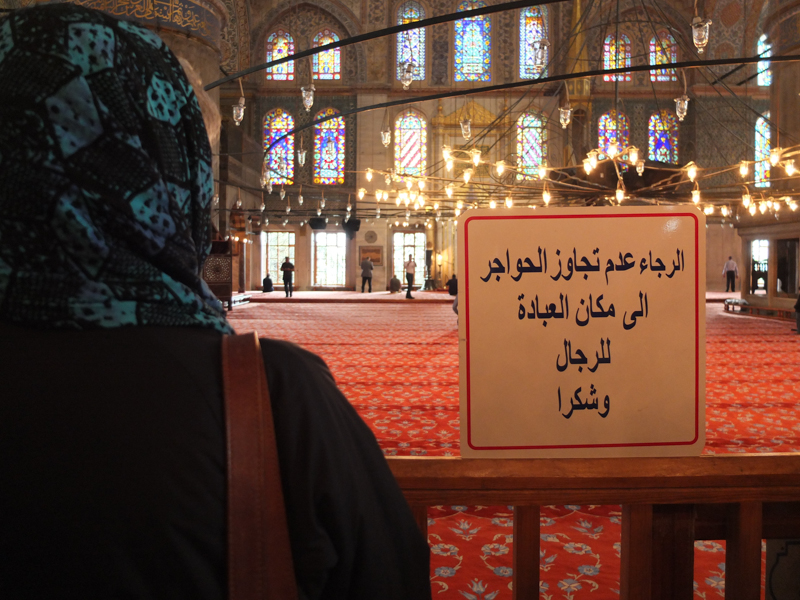 الرجاء عدم تجاوز الحواجر
الى مكان العبادة
للرجال
وشكرا